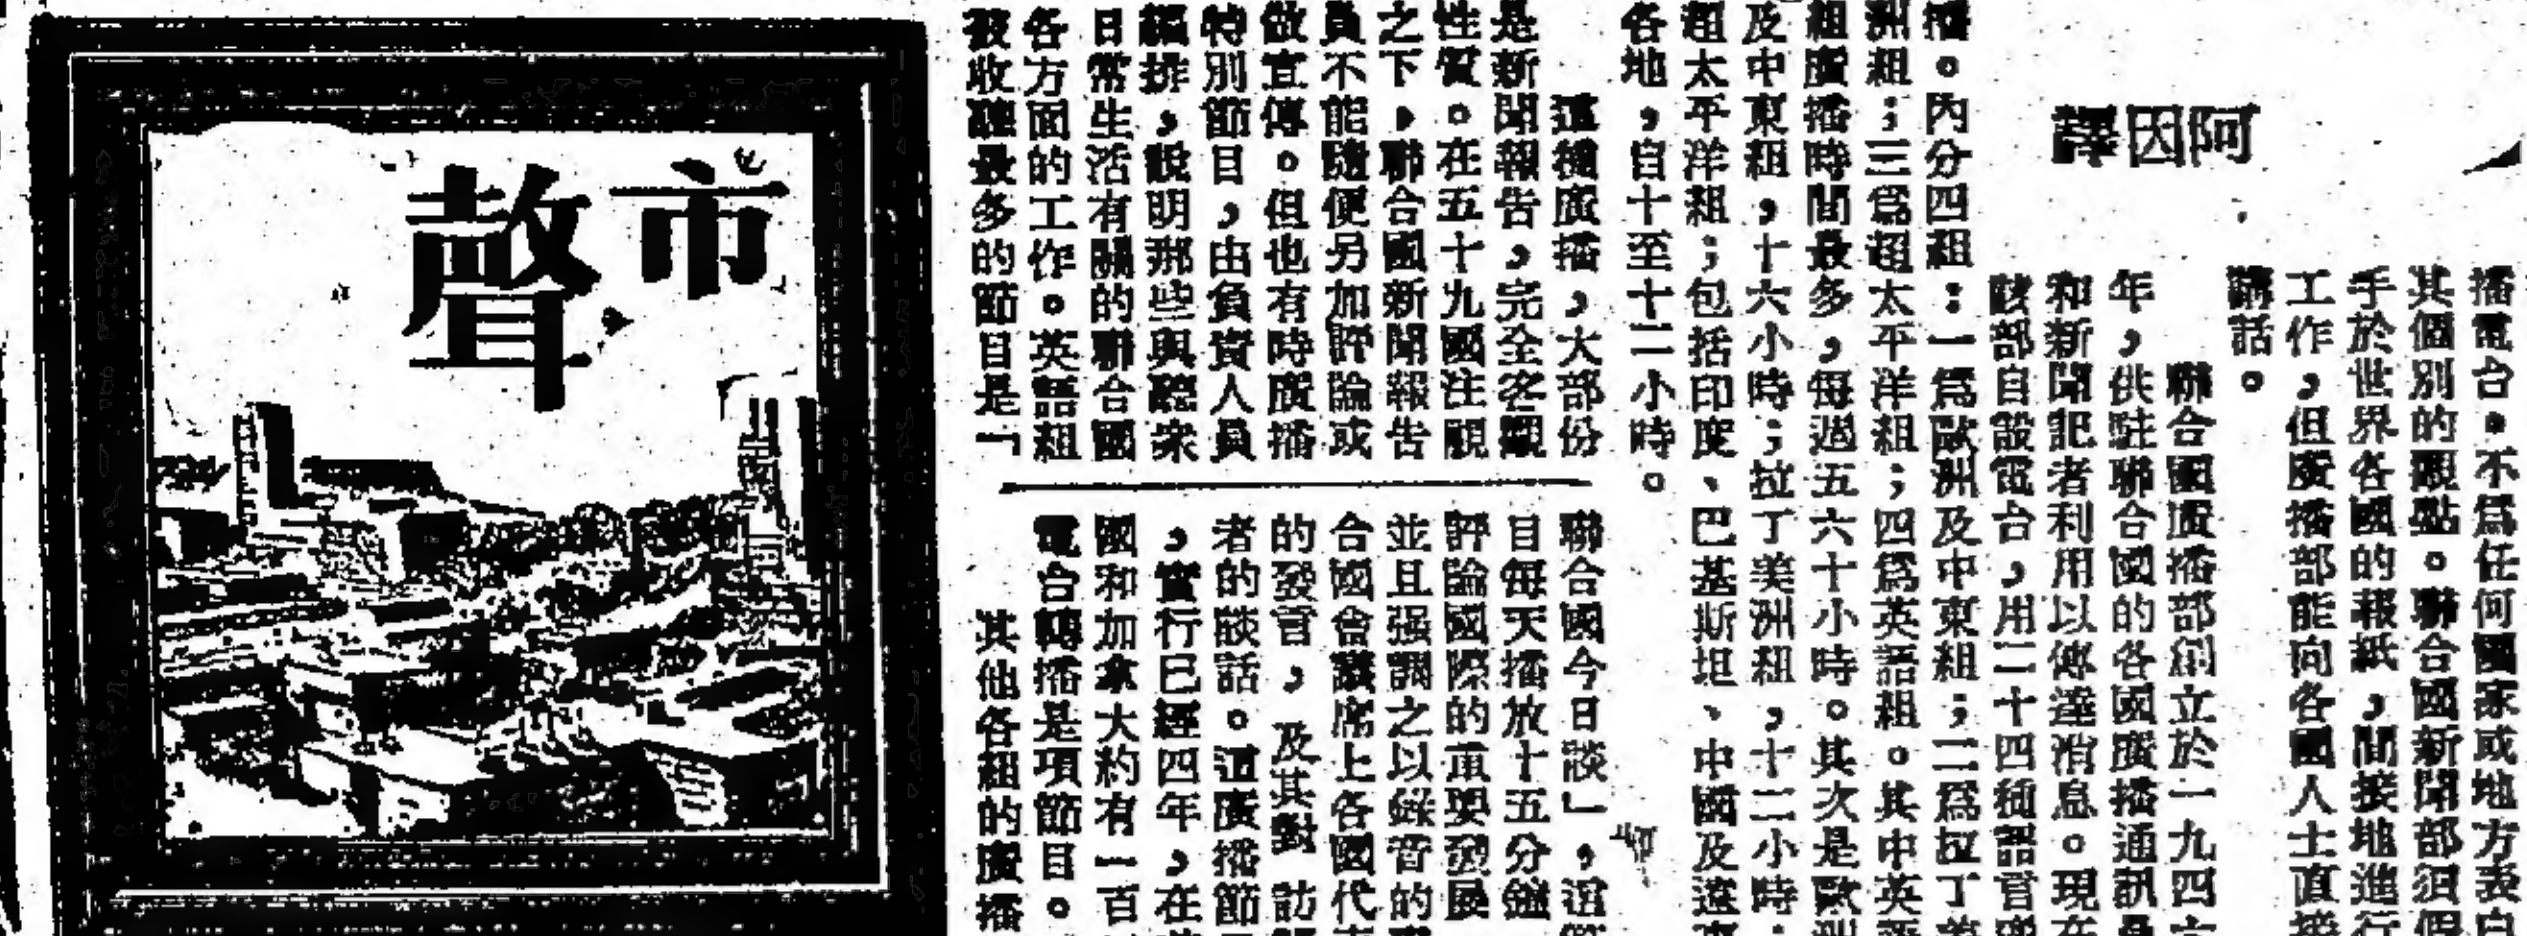 阿因譯
播電台。不爲任何國家或地方表白
其個別的觀點。聯合國新聞部須假
手於世界各國的報紙，間接地進行
工作，但廣播部能向各國人士直接
講話。
聯合國廣播部創立於一九四六
年，供駐聯合國的各國廣播通訊員
和新聞記者利用以傳達消息。現在
該部自設電台，用二十四種語言廣
播。內分四組：一爲歐洲及中東組；二爲拉丁美
洲組；三爲超太平洋組；四爲英語組。其中英語
組廣播時間最多，每週五六十小時。其次是歐洲
及中東組，十六小時；拉丁美洲組，十二小時；
超太平洋組；包括印度、巴基斯坦、中國及遠東
各地，自十至十二小時。
這種廣播，大部份
是新聞報告，完全客觀
性質。在五十九國注視
之下，聯合國新聞報告
員不能隨便另加評論或
做宣傳。但也有時廣播
特別節目，由負責人員
編排，說明那些與聽衆
日常生活有關的聯合國
各方面的工作。英語組
被收聽最多的節目是「
聯合國今日談」，這節
目每天播放十五分鐘
評論國際的重要發展
並且强調之以錄音的
合國會議席上各國代表
的發言，及其對訪
者的談話。這廣播節
，實行已經四年，在
國和加拿大約有一百
電台轉播是項節目。
其他各組的廣播
市聲